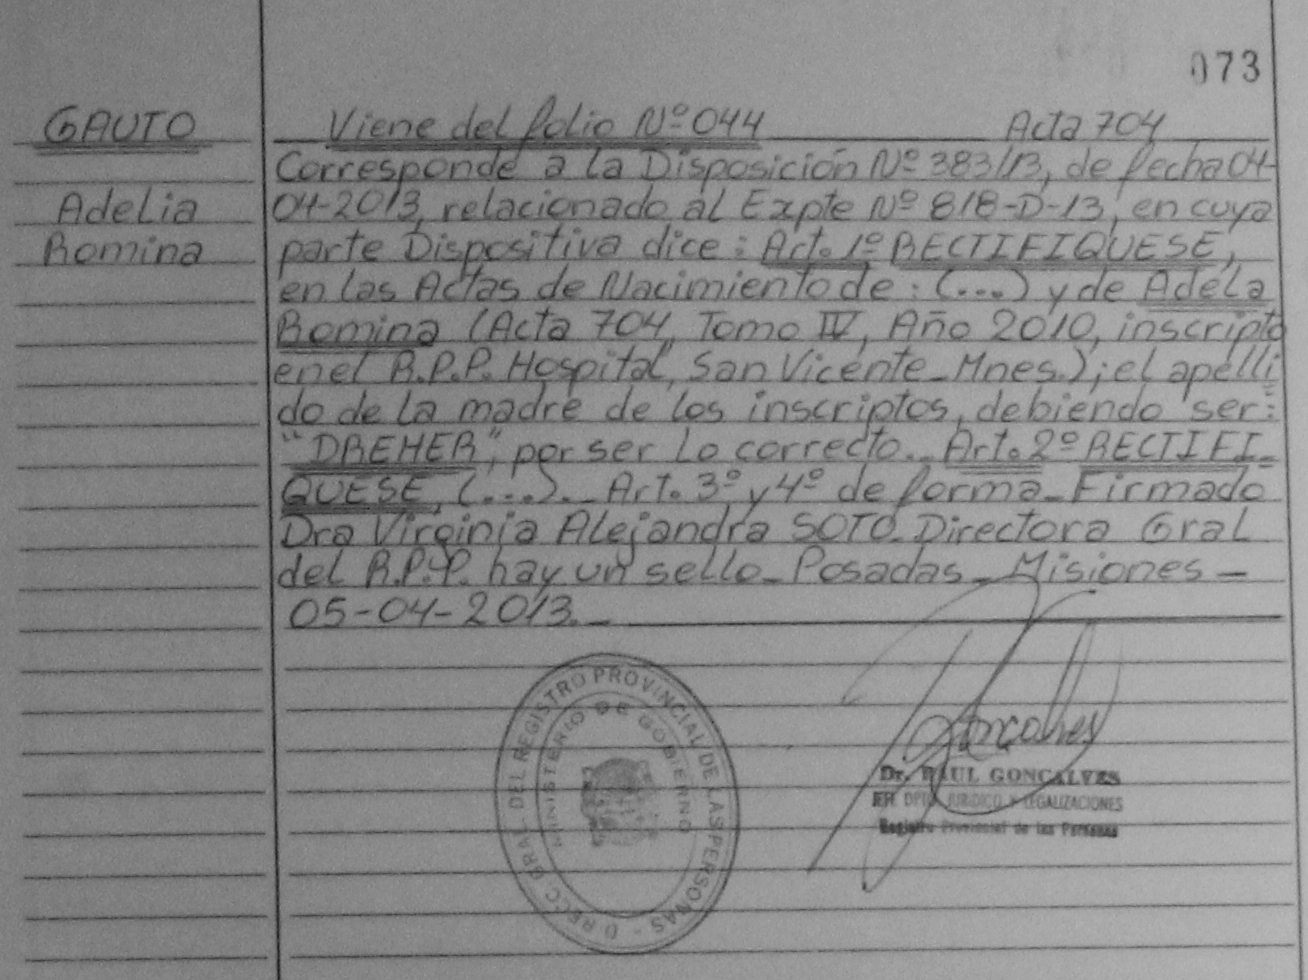 073
GAUTO
Adelia
Romina
Viene del folio Nº 044 Acta 704
Corresponde a la Disposición Nº 383/13, de fecha 04-
04-2013, relacionado al Expte Nº 818-D-13, en cuya
parte Dispositiva dice: Art. 1º RECTIFIQUESE,
en las Actas de Nacimiento de: (...) y de Adela
Romina (Acta 704, Tomo IV, Año 2010, inscripta
en el R.P.P. Hospital, San Vicente_Mnes.); el apelli
do de la madre de los inscriptos, debiendo ser:
"DREHER", por ser lo correcto._ Art. 2º RECTIFI_
QUESE, (....)._ Art. 3º y 4º de forma_Firmado
Dra Virginia Alejandra SOTO_Directora Gral
del R.P.P. hay un sello_Posadas_Misiones_
05-04-2013._
DIRECC. GRAL. DEL REGISTRO PROVINCIAL DE LAS PERSONAS -
MINISTERIO DE GOBIERNO
Gonçalves
Dr. RAUL GONCALVES
JEFE DPTO. JURIDICO Y LEGALIZACIONES
Registro Provincial de las Personas